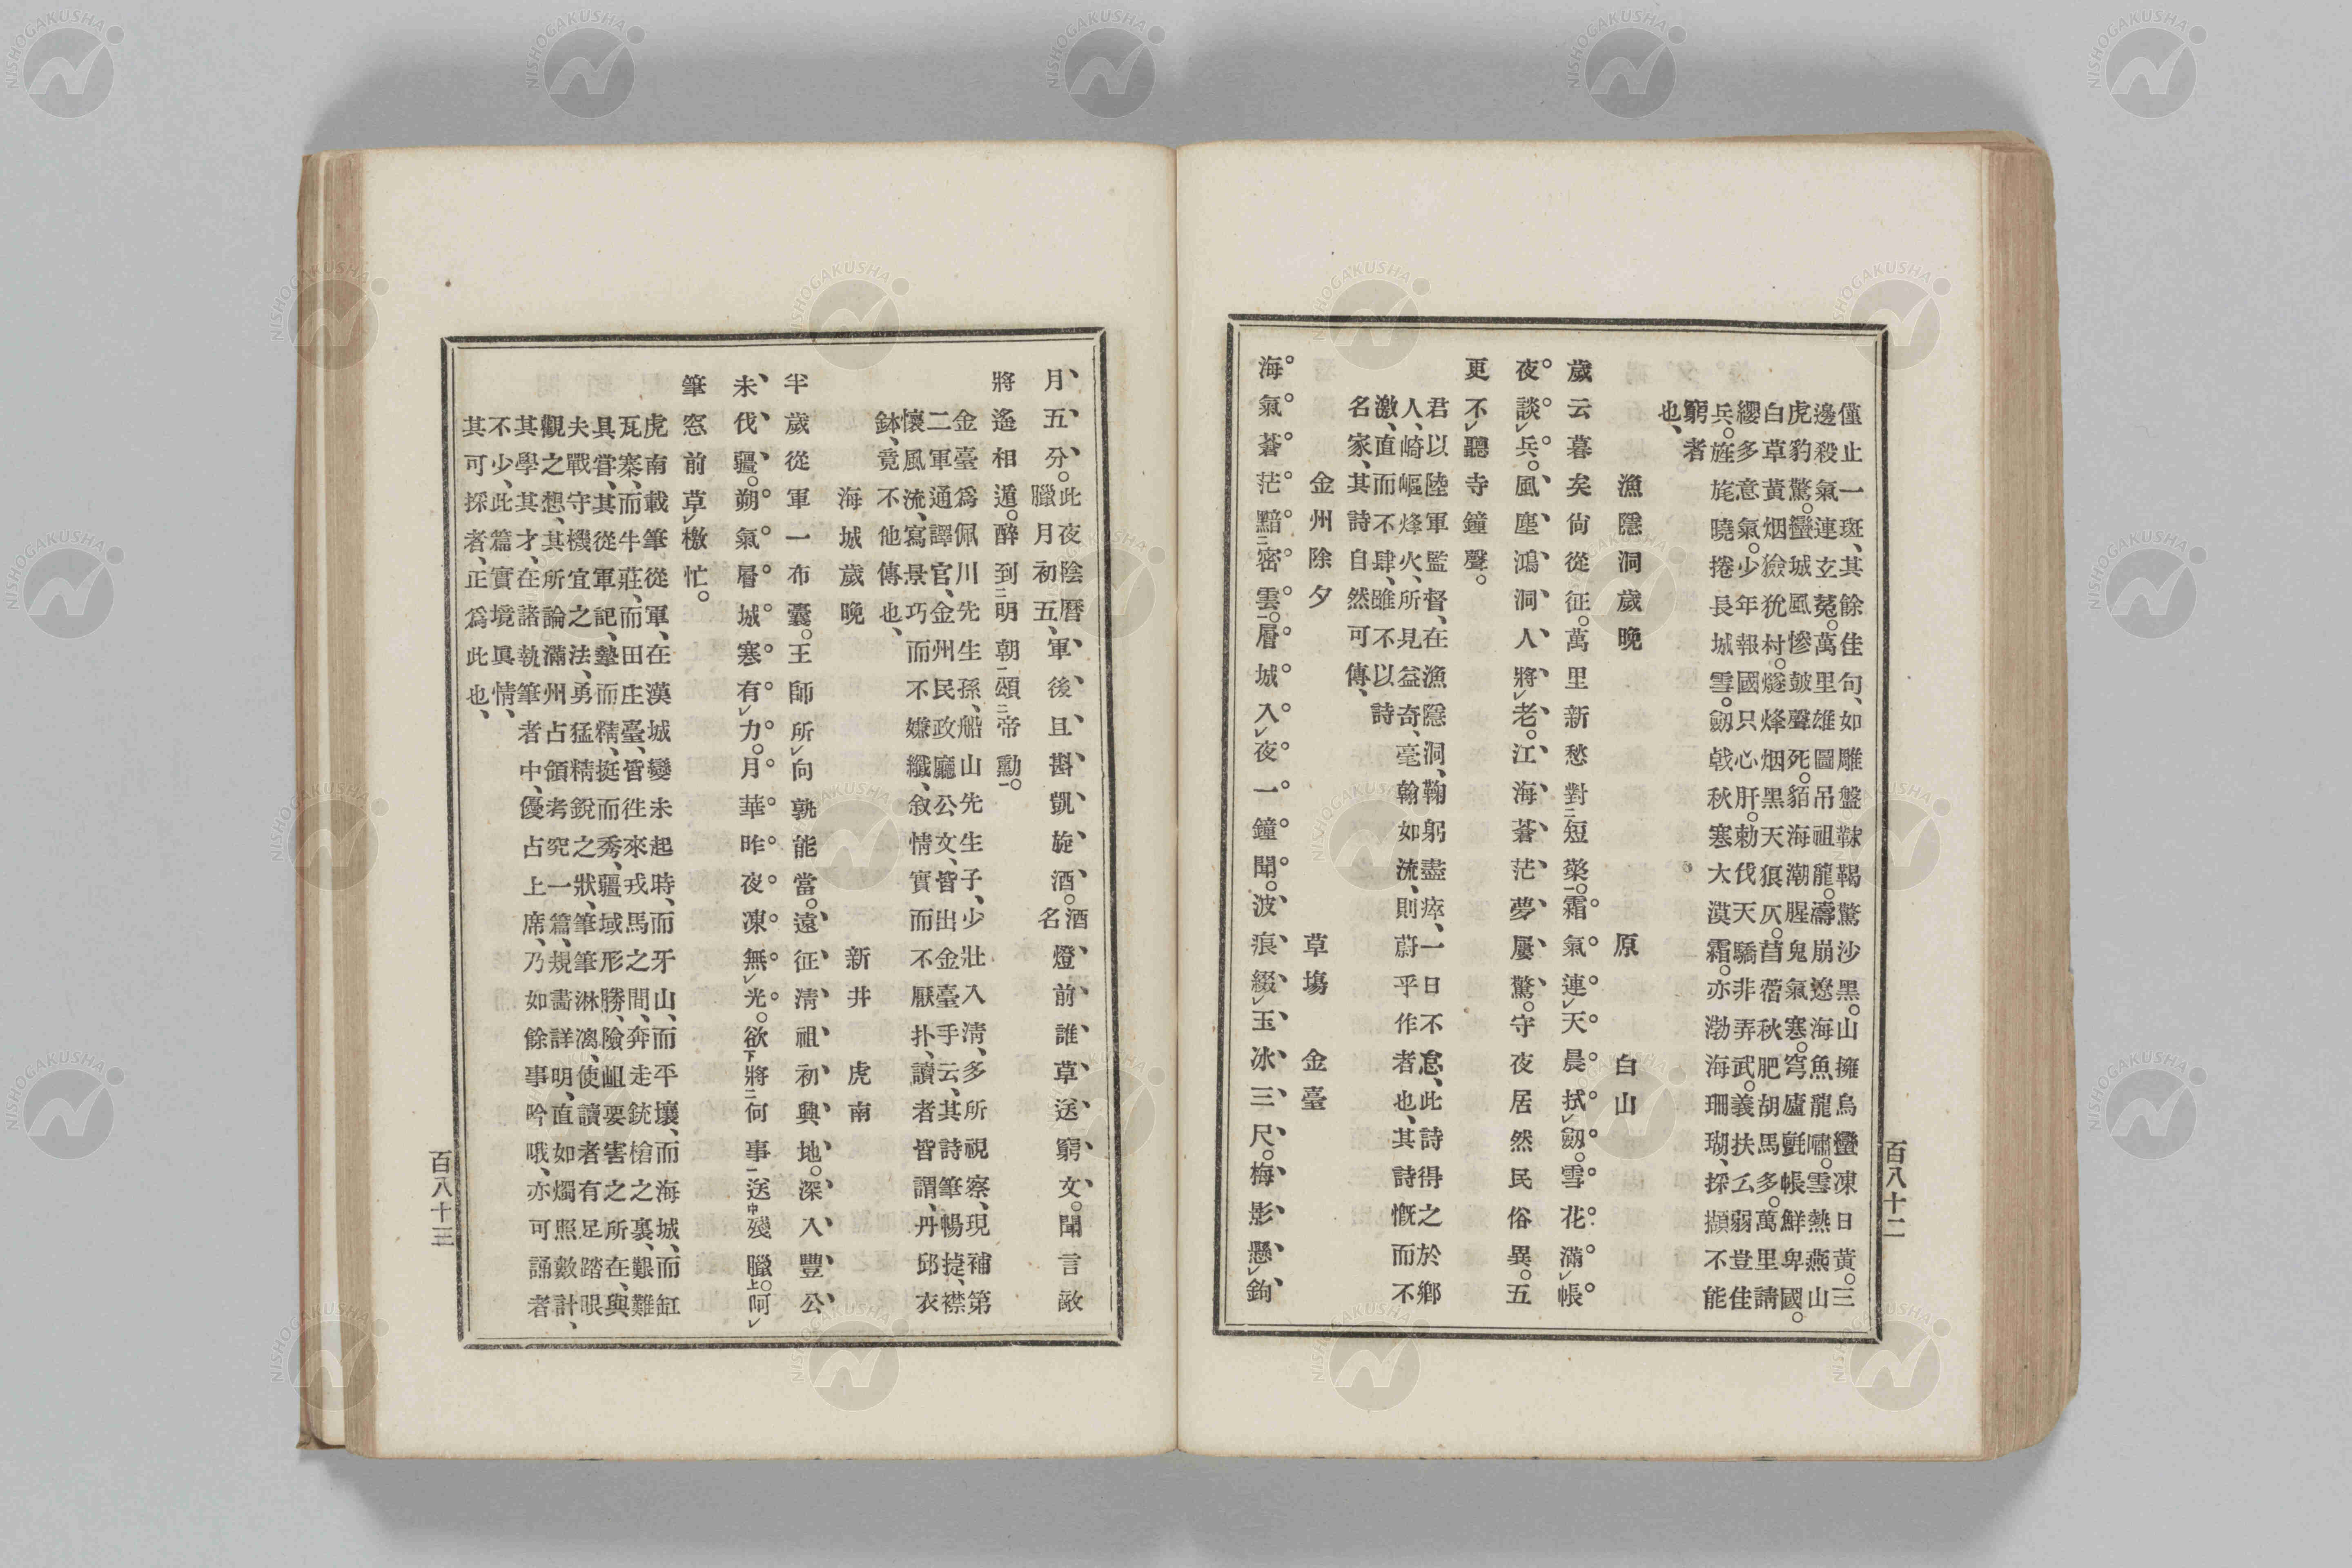 僅止一斑、其餘佳句、如雕盤韎鞨驚沙黑。山擁烏蠻凍日黃。三
邊殺氣連玄菟。萬里雄圖吊祖龍。濤崩遼海魚龍嘯。雪熱燕山
虎豹驚。蠻城風慘皷聲死。貊海潮腥鬼氣寒。穹廬氈帳鮮卑國。
白草黃烟獫狁村。燧烽烟黑天狼仄。苜蓿秋肥胡馬多。萬里請
纓多意氣。少年報國只心肝。勅伐天驕非弄武。義扶厶弱豈佳
兵。旌旄曉捲長城雪。劔戟秋寒大漠霜。亦渤海珊瑚、探擷不能
窮者
也、
漁隱洞歲晚 原 白山
歲云暮矣尙從征。萬里新愁對二短檠。一霜氣連天晨拭劔。雪花滿帳
夜談兵。風塵鴻洞人將老。江海蒼茫夢屢驚。守夜居然民俗異。五
更不聽寺鐘聲。
君以陸軍監督、在漁隱洞、鞠躬盡瘁、一日不怠、此詩得之於鄕
人、崎嶇烽火、所見益奇、毫翰如流、則蔚乎作者也、其詩慨而不
激、直而不肆、雖不以詩
名家、其詩自然可傳、
金州除夕 草塲 金臺
海氣蒼茫黯二密雲。一層城入夜一鐘聞。波痕綴玉冰三尺。梅影懸鉤
百八十二
月五分。此夜陰曆臘月初五、軍後且斟凱旋酒。酒名燈前誰草送窮文。聞言敵
將遙相遁。醉到二明朝一頌二帝勳。一
金臺爲佩川先生孫、船山先生子、少壯入淸、多所視察、現補第
二軍通譯官、金州民政廳公文、皆出金臺手云、其詩筆暢捷、襟
懷風流、寫景巧而不嫌纖、敍情實而不厭扑、讀者皆謂、丹邱衣
鉢、竟不他傳也、
海城歲晚 新井 虎南
半歲從軍一布囊。王師所向孰能當。遠征淸祖初興地。深入豐公
未伐疆。朔氣層城寒有力。月華昨夜凍無光。欲下將二何事一送中殘臘上。呵
筆窓前草檄忙。
虎南載筆從軍、在漢城變未起時、而牙山、而平壤、而海城、而缸
瓦寨、而牛莊、而田庄臺、皆徃來戎馬之間、奔走銃槍之裏、艱難
具嘗、其從軍記、墊而精、挺而秀、疆域形勝、險岨要害之所在、與
夫戰守機宜之法、勇猛精銳之狀、筆筆淋漓、使讀者有足踏眼
觀之想、其所論滿州占領考究一篇、規畫詳明、直如燭照數計、
其學其才、在諸執筆者中、優占上席、乃如餘事吟哦、亦可誦者
不少、此篇實境眞情、
其可採者、正爲此也、
百八十三